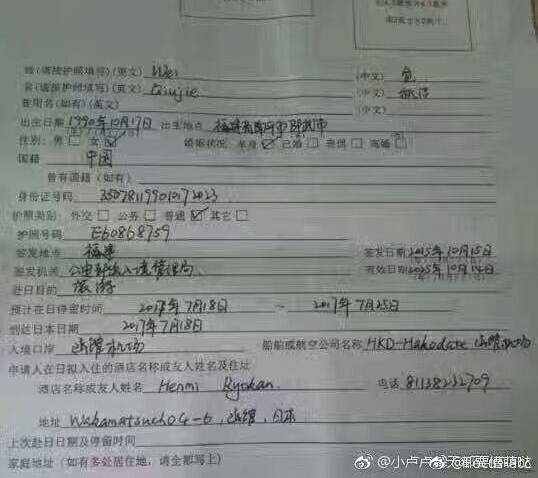 姓(请按护照填写)(英文) Wei (中文) 危
名(请按护照填写)(英文) Qiujie (中文) 秋洁
曾用名(如有)(英文) (中文)
出生日期 1990年10月17日 出生地点 福建省南平市邵武市
性别: 男 女 婚姻状况: 单身 已婚 丧偶 离婚
国籍 中国
曾有国籍(如有)
身份证号码 350781199010172023
护照类别: 外交 公务 普通 其它
护照号码 E60868759
签发地点 福建 签发日期 2015年10月15日
签发机关 公安部出入境管理局 有效日期 2025年10月14日
赴日目的 旅游
预计在日停留时间 2017年7月18日 ~ 2017年7月25日
到达日本日期 2017年7月18日
入境口岸 函馆机场 船舶或航空公司名称 HKD-Hakodate 函馆机场
申请人在日拟入住的酒店名称或友人姓名及住址
酒店名称或友人姓名 Henmi Ryokan 电话 81138232709
地址 Wakamatsucho 4-6, 函馆, 日本
上次赴日日期及停留时间
家庭地址(如有多处居住地,请全部写上)